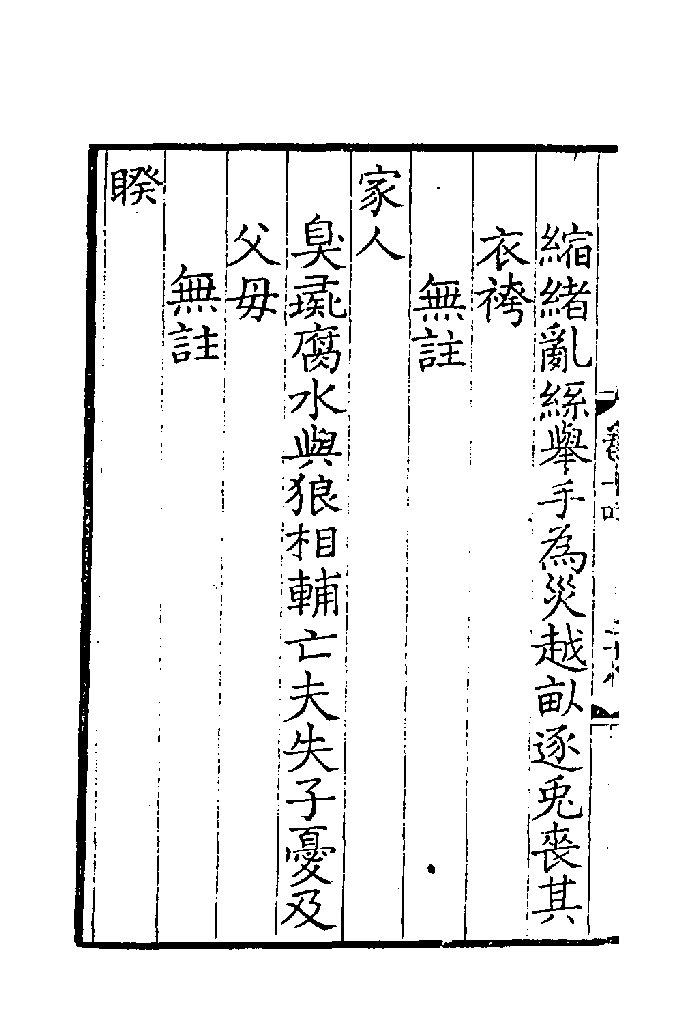 縮緒亂絲舉手為災越畝逐兎喪其
衣袴
無註
家人
臭彘腐水與狼相輔亡夫失子憂及
父母
無註
睽